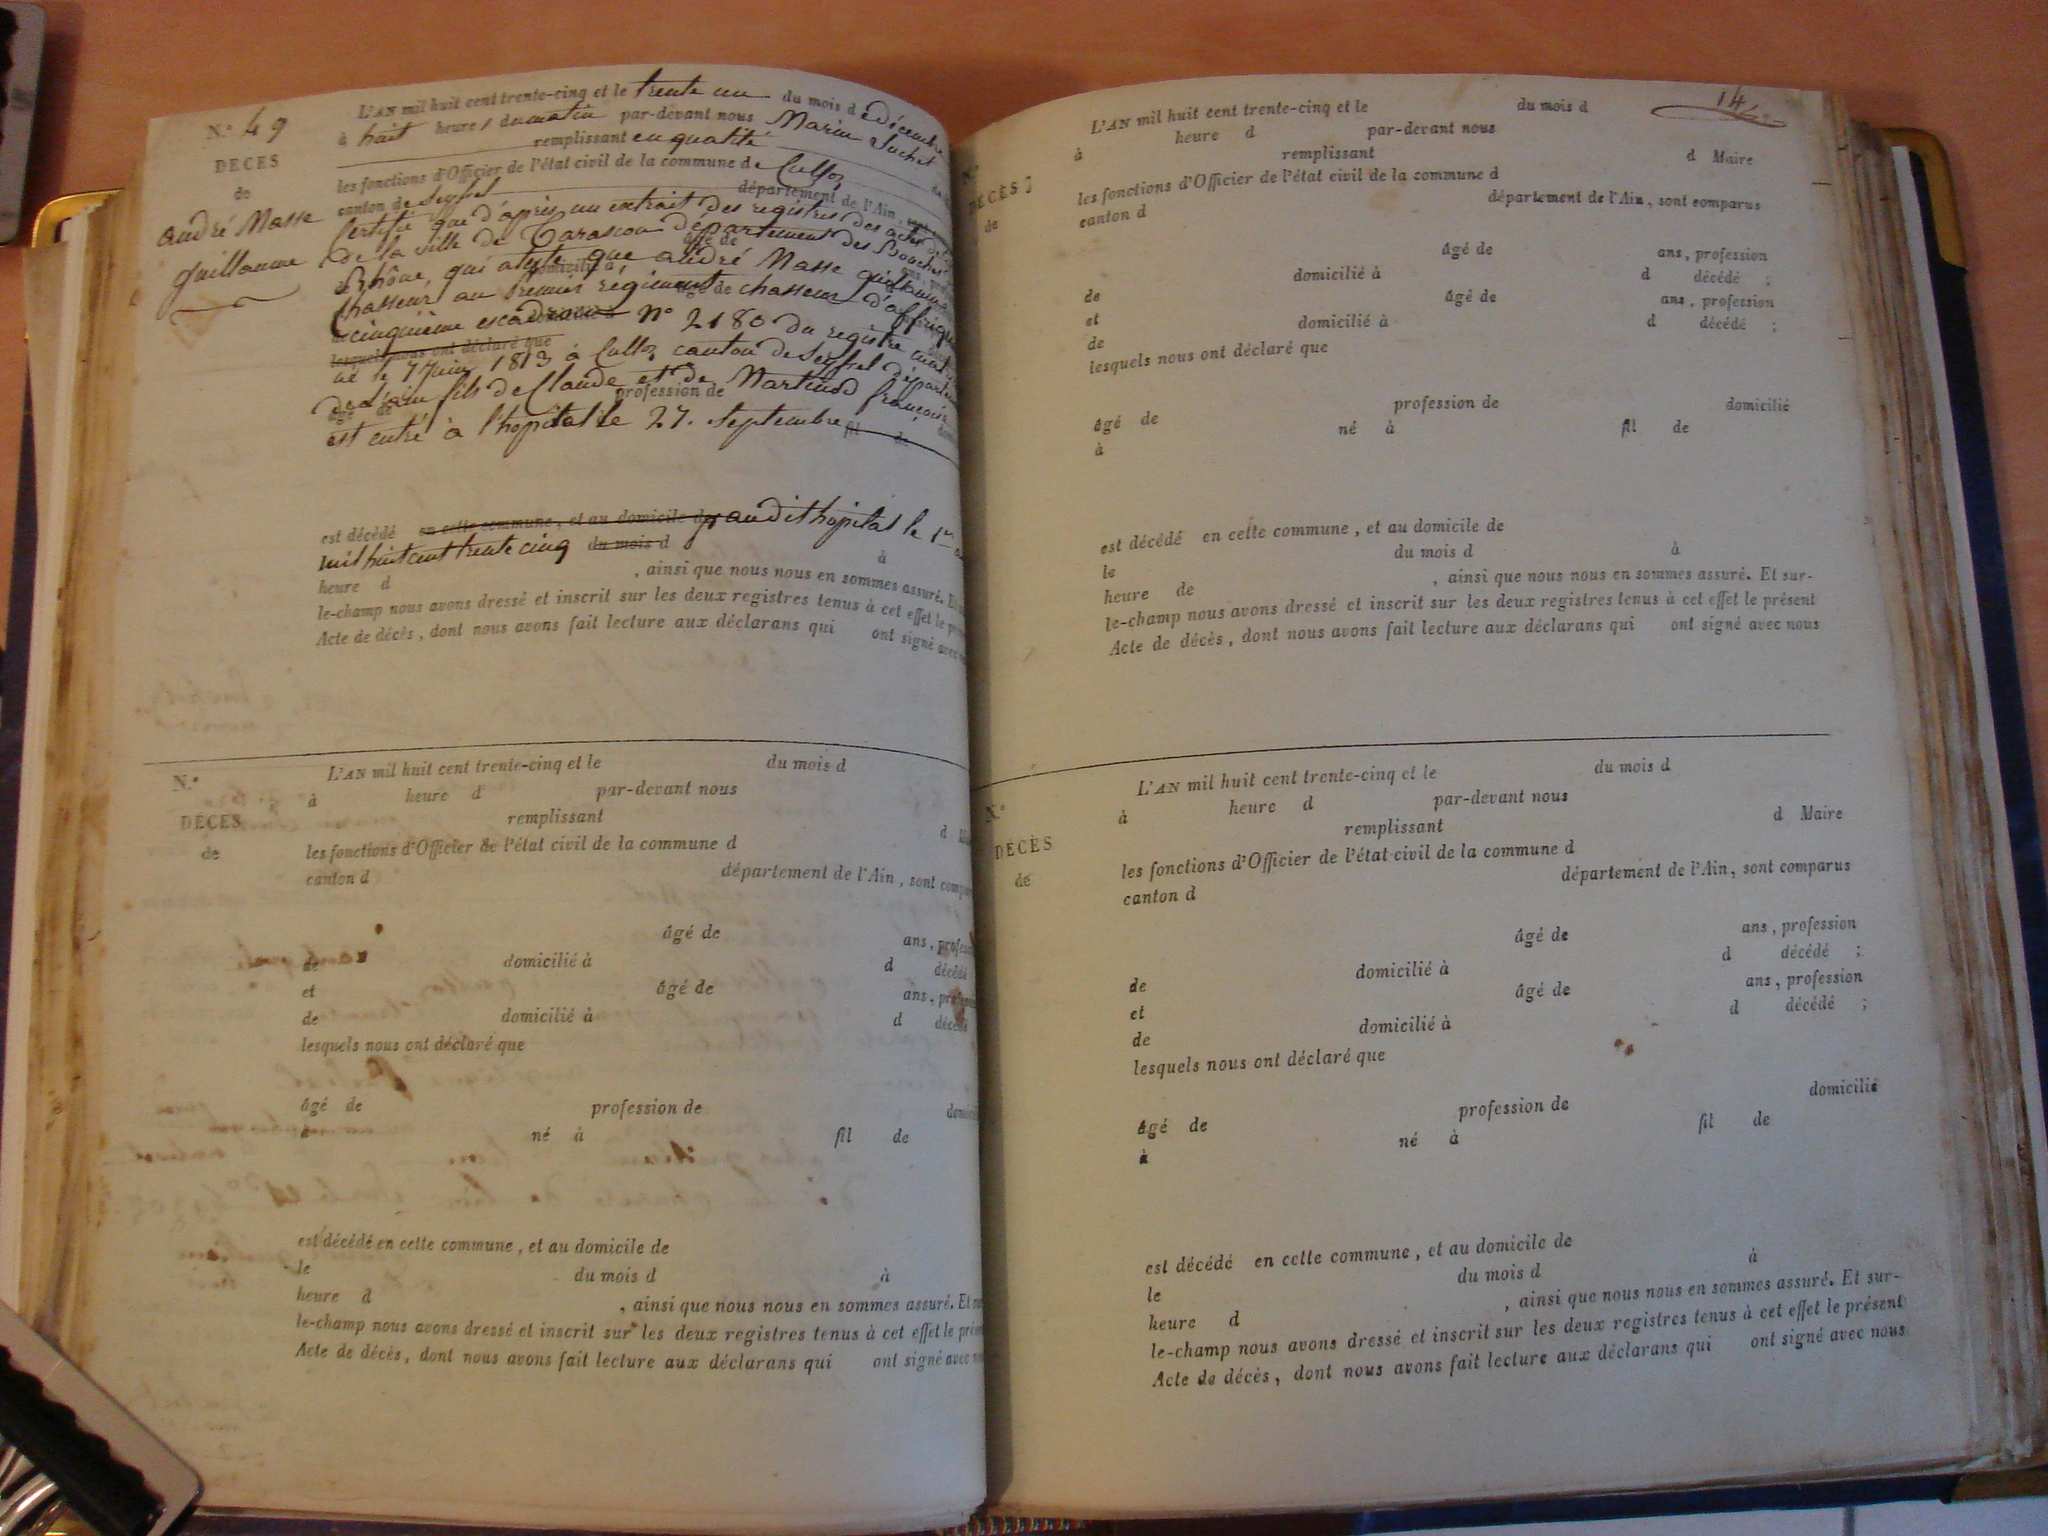 N.° 49
DECES
de
andré Masse
guillaume
L'AN mil huit cent trente-cinq et le trente un du mois d e décembre
à huit heures du matin par-devant nous Marin Suchet
remplissant en qualité
les fonctions d'Officier de l'état civil de la commune de Culloz
canton de Seyssel département de l'Ain,
Certifie que d'après un extrait des registres des actes de
de la ville de Tarascon département des Bouches
du Rhône, qui atteste que andré Masse guillaume
chasseur au premier régiment de chasseurs d'affrique
cinquième escadron n° 2180 du registre mat
lesquels nous ont déclaré que
né le 7 juin 1813 à Culloz canton de Seyssel départem
de l'ain fils de Claude et de Martinod françoise
âgé de profession de
est entré à l'hopital le 27. septembre fil de
est décédé en cette commune, et au domicile de audit hopital le 1er
mil huit cent trente cinq du mois d à
heure d , ainsi que nous nous en sommes assuré. Et
le-champ nous avons dressé et inscrit sur les deux registres tenus à cet effet le
Acte de décès, dont nous avons fait lecture aux déclarans qui ont signé avec
N.°
DECES
de
L'AN mil huit cent trente-cinq et le du mois d
à heure d par-devant nous
remplissant d
les fonctions d'Officier de l'état civil de la commune d
canton d département de l'Ain, sont
âgé de ans,
de domicilié à d décédé
et âgé de ans,
de domicilié à d décédé
lesquels nous ont déclaré que
âgé de profession de
à né à fil de
est décédé en cette commune, et au domicile de
le du mois d à
heure d , ainsi que nous nous en sommes assuré. Et
le-champ nous avons dressé et inscrit sur les deux registres tenus à cet effet le
Acte de décès, dont nous avons fait lecture aux déclarans qui ont signé avec
14
DÉCÈS
de
L'AN mil huit cent trente-cinq et le du mois d
à heure d par-devant nous
remplissant d Maire
les fonctions d'Officier de l'état civil de la commune d
canton d département de l'Ain, sont comparus
âgé de ans, profession
de domicilié à d décédé ;
et âgé de ans, profession
de domicilié à d décédé ;
lesquels nous ont déclaré que
âgé de profession de domicilié
à né à fil de
est décédé en cette commune, et au domicile de
le du mois d à
heure de , ainsi que nous nous en sommes assuré. Et sur-
le-champ nous avons dressé et inscrit sur les deux registres tenus à cet effet le présent
Acte de décès, dont nous avons fait lecture aux déclarans qui ont signé avec nous
N.°
DÉCÈS
de
L'AN mil huit cent trente-cinq et le du mois d
à heure d par-devant nous
remplissant d Maire
les fonctions d'Officier de l'état civil de la commune d
canton d département de l'Ain, sont comparus
âgé de ans, profession
de domicilié à d décédé ;
et âgé de ans, profession
de domicilié à d décédé ;
lesquels nous ont déclaré que
âgé de profession de domicilié
à né à fil de
est décédé en cette commune, et au domicile de
le du mois d à
heure d , ainsi que nous nous en sommes assuré. Et sur-
le-champ nous avons dressé et inscrit sur les deux registres tenus à cet effet le présent
Acte de décès, dont nous avons fait lecture aux déclarans qui ont signé avec nous